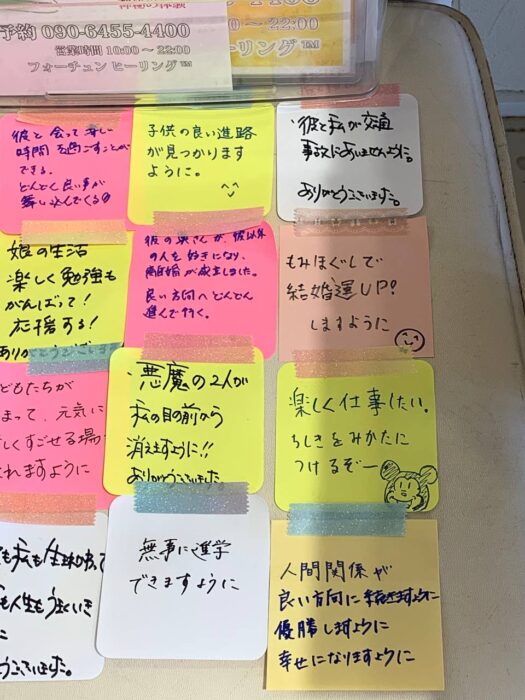 予約 090-6455-4400
営業時間 10:00～22:00
フォーチュン ヒーリング™
～ 22:00
ーリング™
彼と会って楽しい
時間を過ごすことが
できる。
どんどん良い事が
舞い込んでくる
子供の良い進路
が見つかります
ように。
・彼と私が交通
事故にあいませんように。
ありがとうございました。
娘の生活
楽しく勉強も
がんばって!
応援する!
ありがとうございます
彼の奥さんが、彼以外
の人を好きになり、
離婚が成立しました。
良い方向へどんどん
進んで行く。
もみほぐしで
結婚運UP!
しますように
どもたちが
まって、元気に
しくすごせる場
れますように
・悪魔の2人が
私の目の前から
消えますように!!
ありがとうございました。
楽しく仕事したい。
ちしきをみかたに
つけるぞー
も私も生まれ
も人生もうまくいき
に
うございました。
無事に進学
できますように
人間関係が
良い方向に続きますように
優勝しますように
幸せになりますように